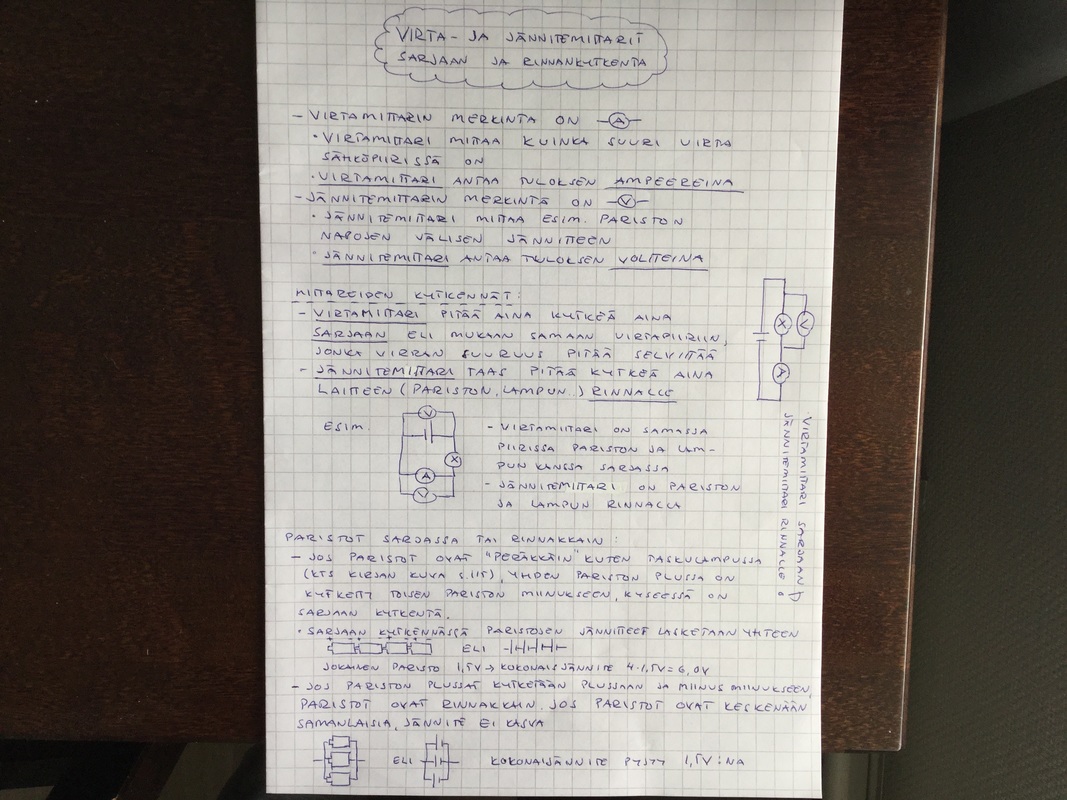 VIRTA- JA JÄNNITEMITTARIT
SARJAAN JA RINNANKYTKENTÄ
- VIRTAMITTARIN MERKINTÄ ON -(A)-
• VIRTAMITTARI MITTAA KUINKA SUURI VIRTA
SÄHKÖPIIRISSÄ ON
• VIRTAMITTARI ANTAA TULOKSEN AMPEEREINA
- JÄNNITEMITTARIN MERKINTÄ ON -(V)-
• JÄNNITEMITTARI MITTAA ESIM. PARISTON
NAPOJEN VÄLISEN JÄNNITTEEN
• JÄNNITEMITTARI ANTAA TULOKSEN VOLTTEINA
MITTAREIDEN KYTKENNÄT:
- VIRTAMITTARI PITÄÄ AINA KYTKEÄ AINA
SARJAAN ELI MUKAAN SAMAAN VIRTAPIIRIIN,
JONKA VIRRAN SUURUUS PITÄÄ SELVITTÄÄ
- JÄNNITEMITTARI TAAS PITÄÄ KYTKEÄ AINA
LAITTEEN (PARISTON, LAMPUN..) RINNALLE
X V
A
VIRTAMITTARI SARJAAN
JÄNNITEMITTARI RINNALLE !
ESIM.
V
X
A
V
- VIRTAMITTARI ON SAMASSA
PIIRISSÄ PARISTON JA LAM-
PUN KANSSA SARJASSA
- JÄNNITEMITTARI ON PARISTON
JA LAMPUN RINNALLA
PARISTOT SARJASSA TAI RINNAKKAIN:
- JOS PARISTOT OVAT "PERÄKKÄIN" KUTEN TASKULAMPUSSA
(KTS KIRJAN KUVA S.115), YHDEN PARISTON PLUSSA ON
KYTKETTY TOISEN PARISTON MIINUKSEEN, KYSEESSÄ ON
SARJAAN KYTKENTÄ.
• SARJAAN KYTKENNÄSSÄ PARISTOJEN JÄNNITTEET LASKETAAN YHTEEN
ELI
JOKAINEN PARISTO 1,5V → KOKONAISJÄNNITE 4·1,5V=6,0V
- JOS PARISTON PLUSSAT KYTKETÄÄN PLUSSAAN JA MIINUS MIINUKSEEN,
PARISTOT OVAT RINNAKKAIN. JOS PARISTOT OVAT KESKENÄÄN
SAMANLAISIA, JÄNNITE EI KASVA
ELI KOKONAISJÄNNITE PYSYY 1,5V:NA